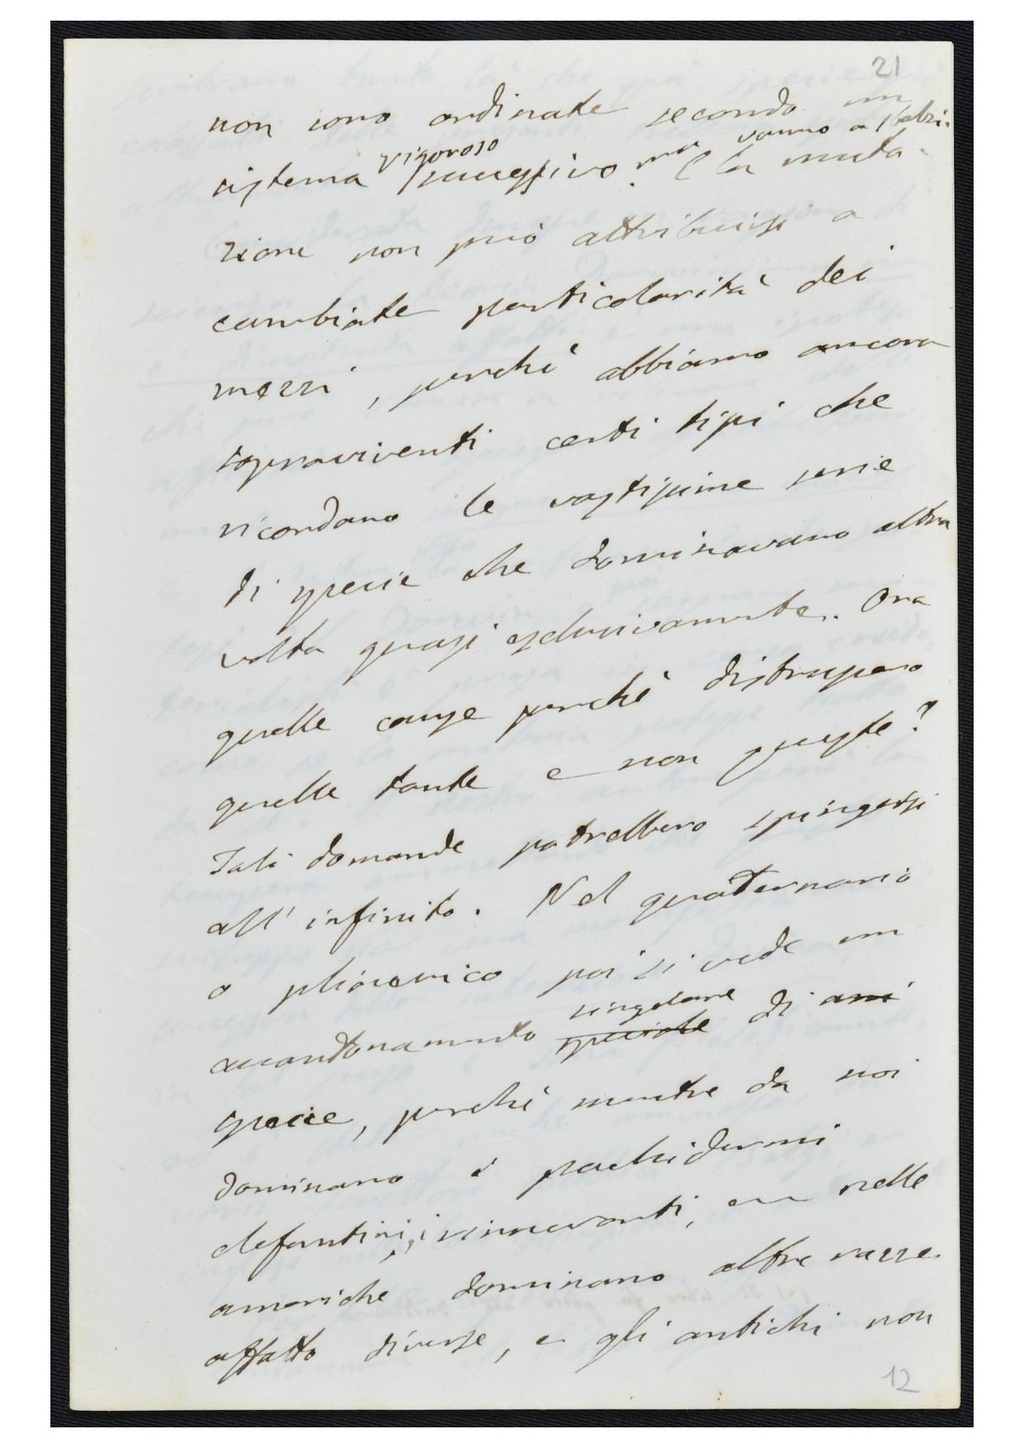 21
non sono ordinate secondo un
sistema vigoroso successivo. ma vanno a sbalzi.
E la muta-
zione non può attribuirsi a
cambiate particolarità dei
mezzi, perchè abbiamo ancora
sopraviventi certi tipi che
ricordano le vastissime serie
di specie che dominavano altra
volta quasi esclusivamente. Ora
quelle cause perchè distrussero
quelle tante e non queste?
Tali domande potrebbero spingersi
all'infinito. Nel quaternario
o pliocenico poi si vede un
accantonamento singolare di
specie, perchè mentre da noi
dominano i pachidermi
elefantini, i rinoceronti, nelle
americhe dominano altre razze
affatto diverse, e gli antichi non
12